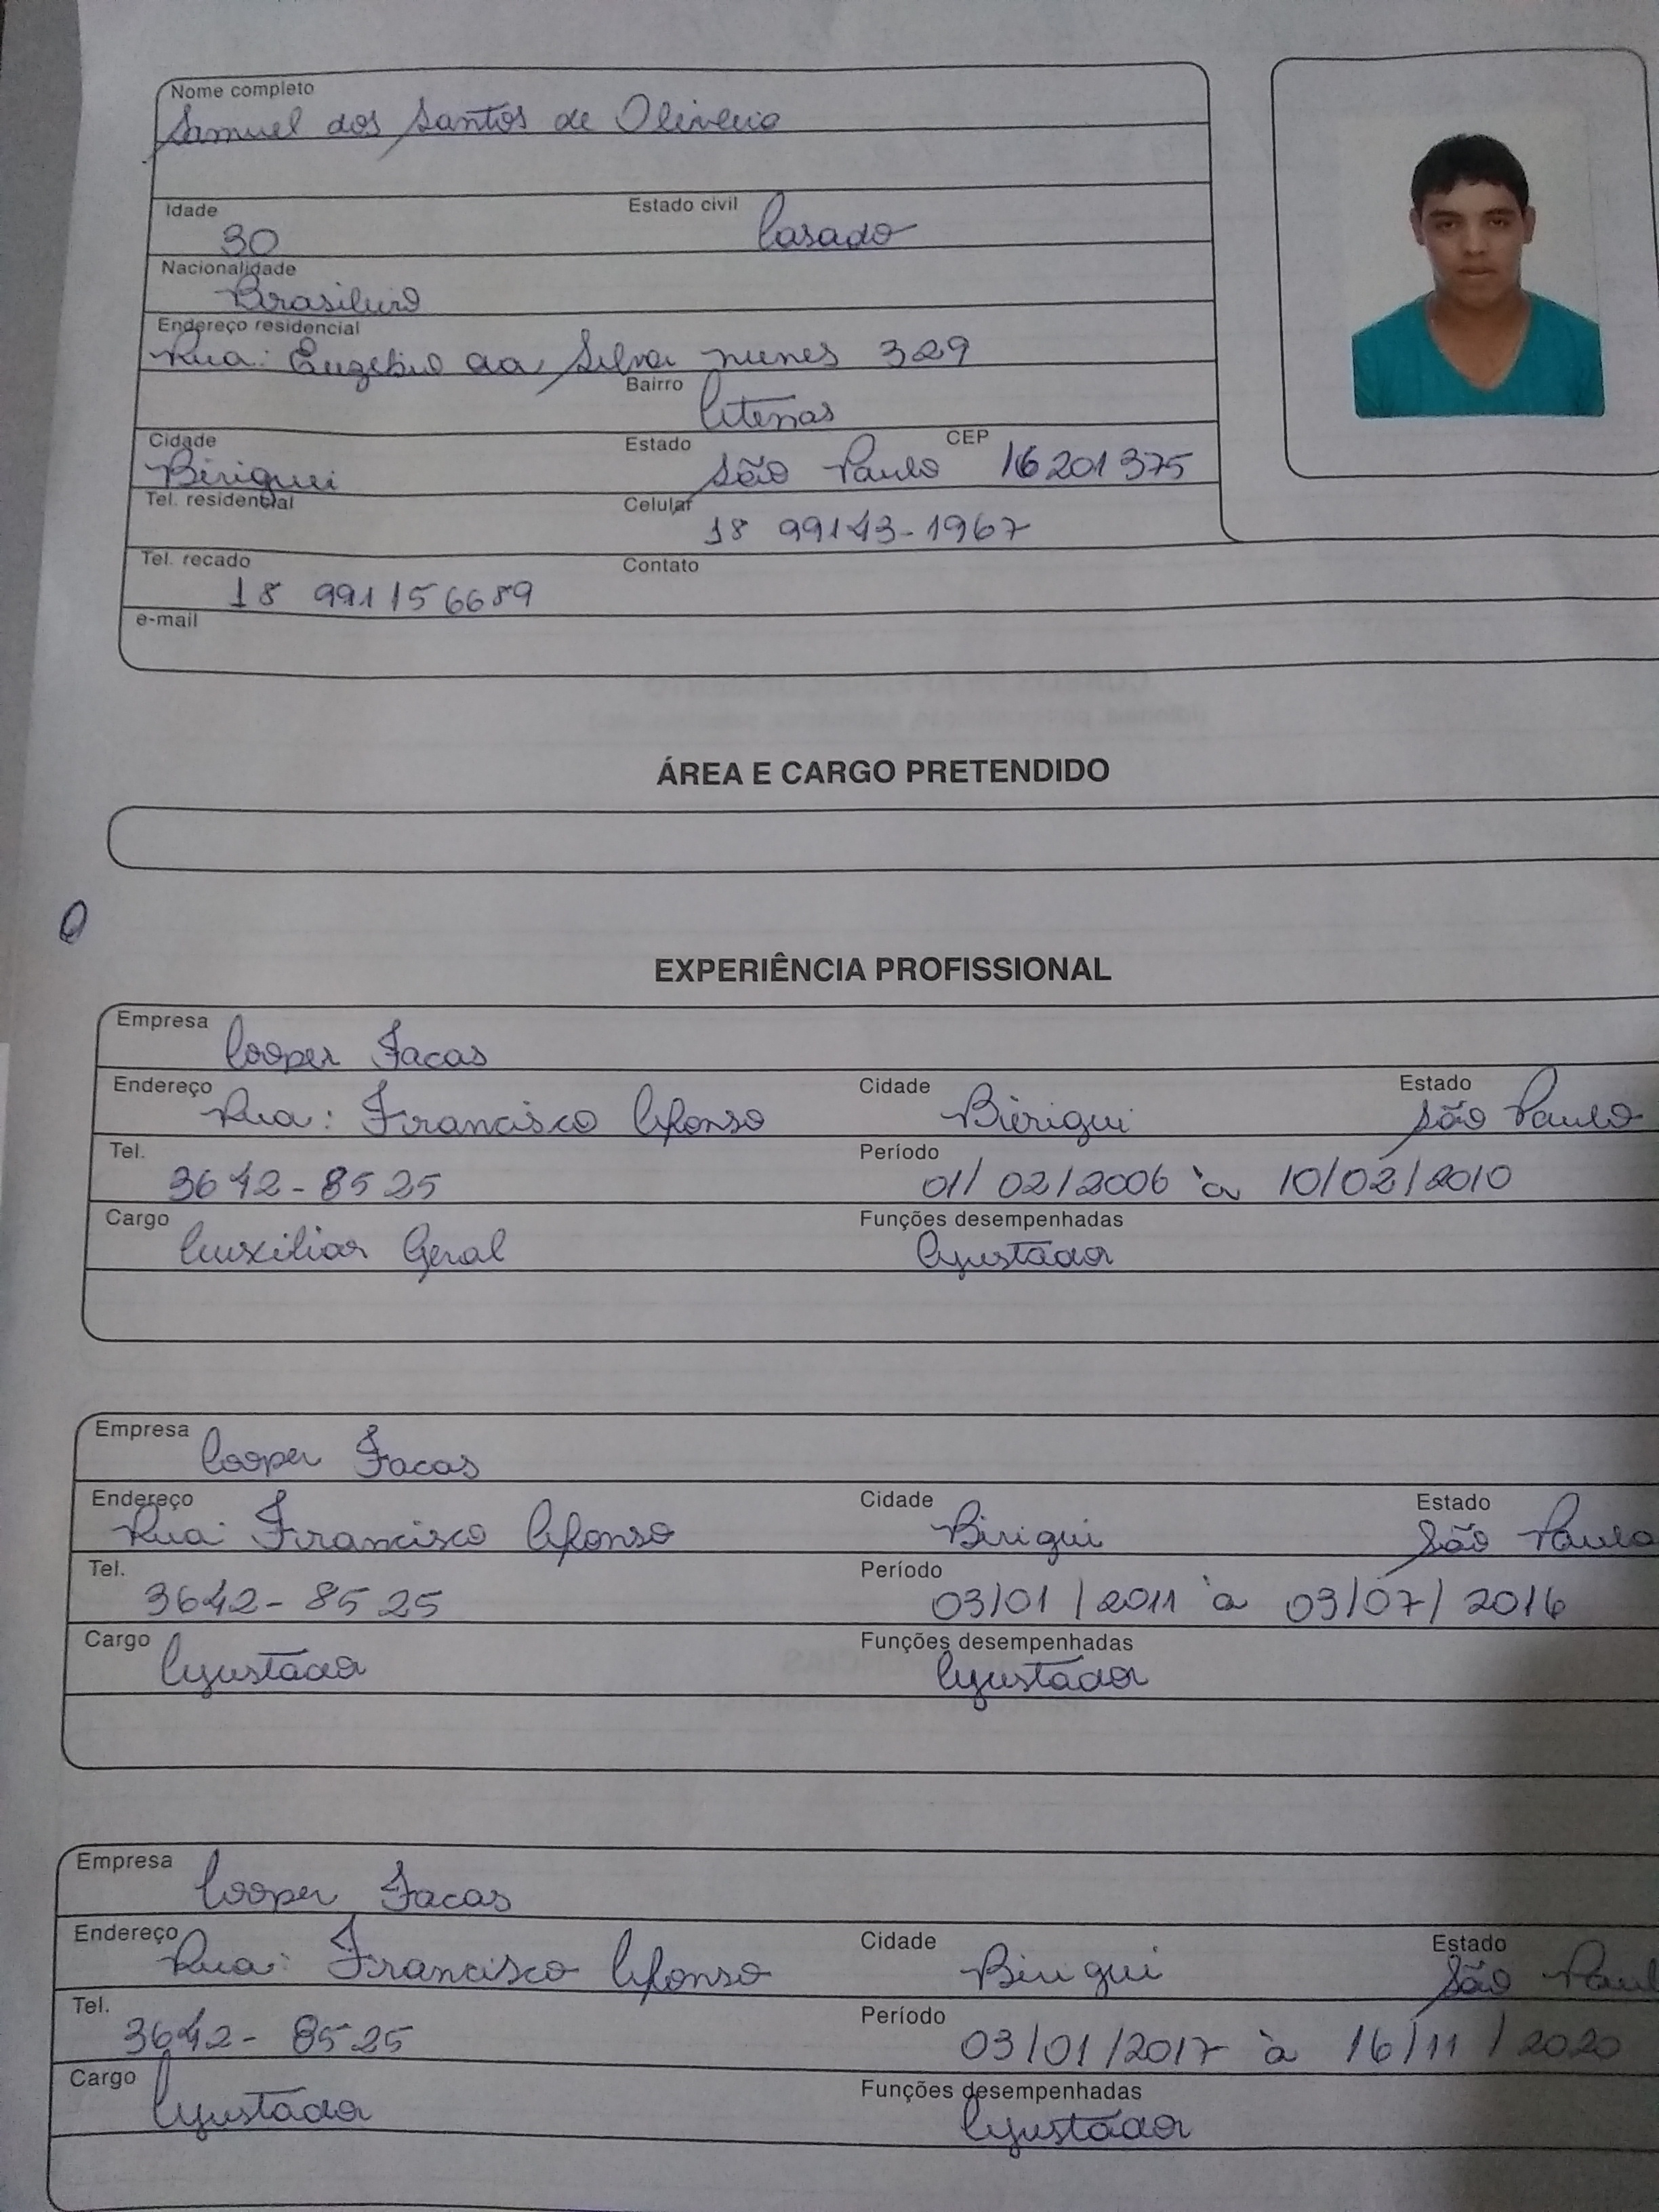 Nome completo
Samuel dos Santos de Oliveira
Idade 30 Estado civil Casado
Nacionalidade
Brasileiro
Endereço residencial
Rua: Euzebio da Silva nunes 329
Bairro Atenas
Cidade Birigui Estado São Paulo CEP 16201375
Tel. residencial Celular 18 99143-1967
Tel. recado 18 991156689 Contato
e-mail
ÁREA E CARGO PRETENDIDO
EXPERIÊNCIA PROFISSIONAL
Empresa Cooper Facas
Endereço Rua: Francisco Afonso Cidade Birigui Estado São Paulo
Tel. 3642-8525 Período 01/02/2006 à 10/02/2010
Cargo Auxiliar Geral Funções desempenhadas Ajustador
Empresa Cooper Facas
Endereço Rua: Francisco Afonso Cidade Birigui Estado São Paulo
Tel. 3642-8525 Período 03/01/2011 à 03/07/2016
Cargo Ajustador Funções desempenhadas Ajustador
Empresa Cooper Facas
Endereço Rua: Francisco Afonso Cidade Birigui Estado São Paul
Tel. 3642-8525 Período 03/01/2017 à 16/11/2020
Cargo Ajustador Funções desempenhadas Ajustador